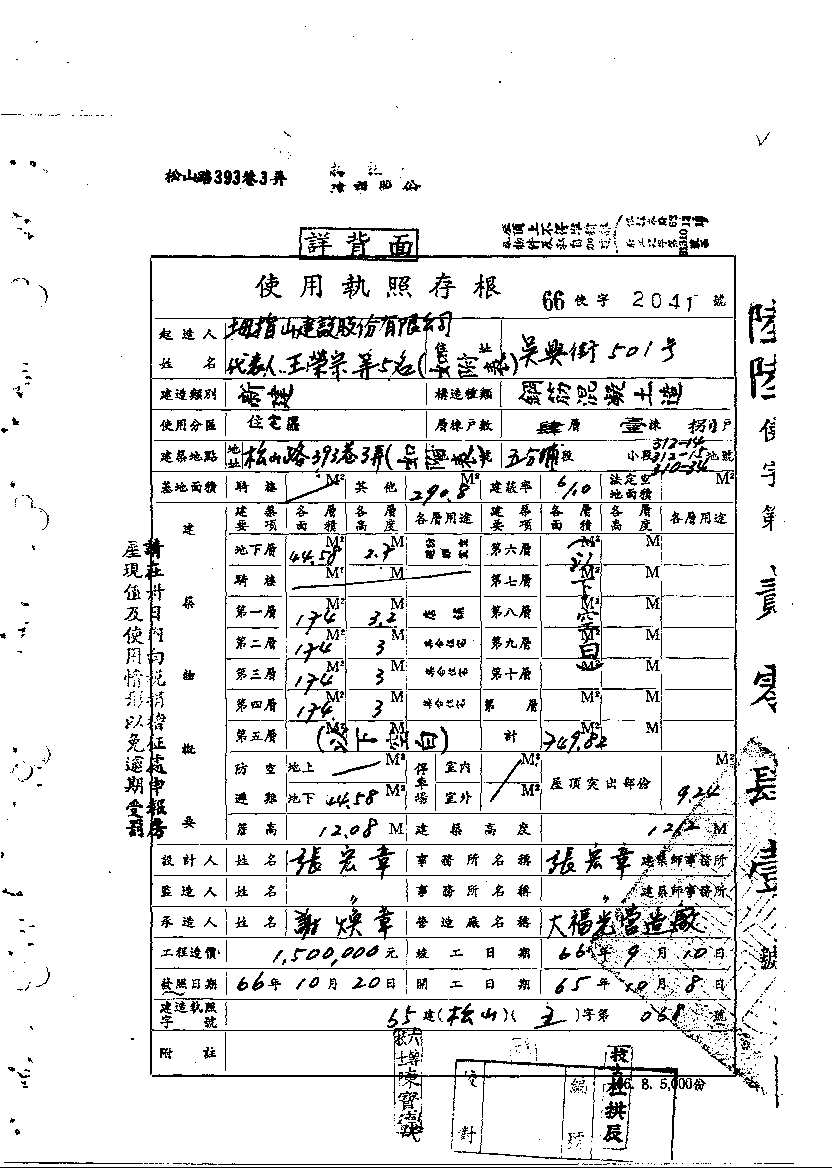 松山路393巷3弄
詳背面
使用執照存根
66 使字 2041 號
起造人 姆指山建設股份有限公司
姓名 代表人王榮宗等5名(如附表) 住址 吳興街501号
建造類別 新建 構造種類 鋼筋混凝土造
使用分區 住宅區 層棟戶數 肆層 壹棟 捌戶
建築地點 地址 松山路393巷3弄(如附表)號 五分埔段 小段 312-14 312-15 310-34 地號
基地面積 騎樓 M² 其他 290.8 M² 建蔽率 6/10 法定空地面積 M²
建築物概要 建築要項 各層面積 各層高度 各層用途 建築要項 各層面積 各層高度 各層用途
地下層 44.58 M² 2.7 M 第六層 (以下空白) M² M
騎樓 M² M 第七層 M² M
第一層 174 M² 3.2 M 第八層 M² M
第二層 174 M² 3 M 集合住宅 第九層 M² M
第三層 174 M² 3 M 集合住宅 第十層 M² M
第四層 174 M² 3 M 集合住宅 第 層 M² M
第五層 (以下空白) M² M 計 749.82 M² M
防空避難 地上 M² 停車場 室內 M² 屋頂突出部份 9.24
地下 44.58 M² 室外 M²
簷高 12.08 M 建築高度 12.2 M
設計人 姓名 張宏章 事務所名稱 張宏章 建築師事務所
監造人 姓名 〃 事務所名稱 〃 建築師事務所
承造人 姓名 謝煥章 營造廠名稱 大福光營造廠
工程造價 1,500,000元 竣工日期 66年9月10日
發照日期 66年10月20日 開工日期 65年10月8日
建造執照字號 65建(松山)(主)字第068號
附註
請在卅日內向稅捐稽征處申報房
屋現值及使用情形以免逾期受罰
陸陸使字第貳零肆壹號
校對
編號
66.8.5,000份